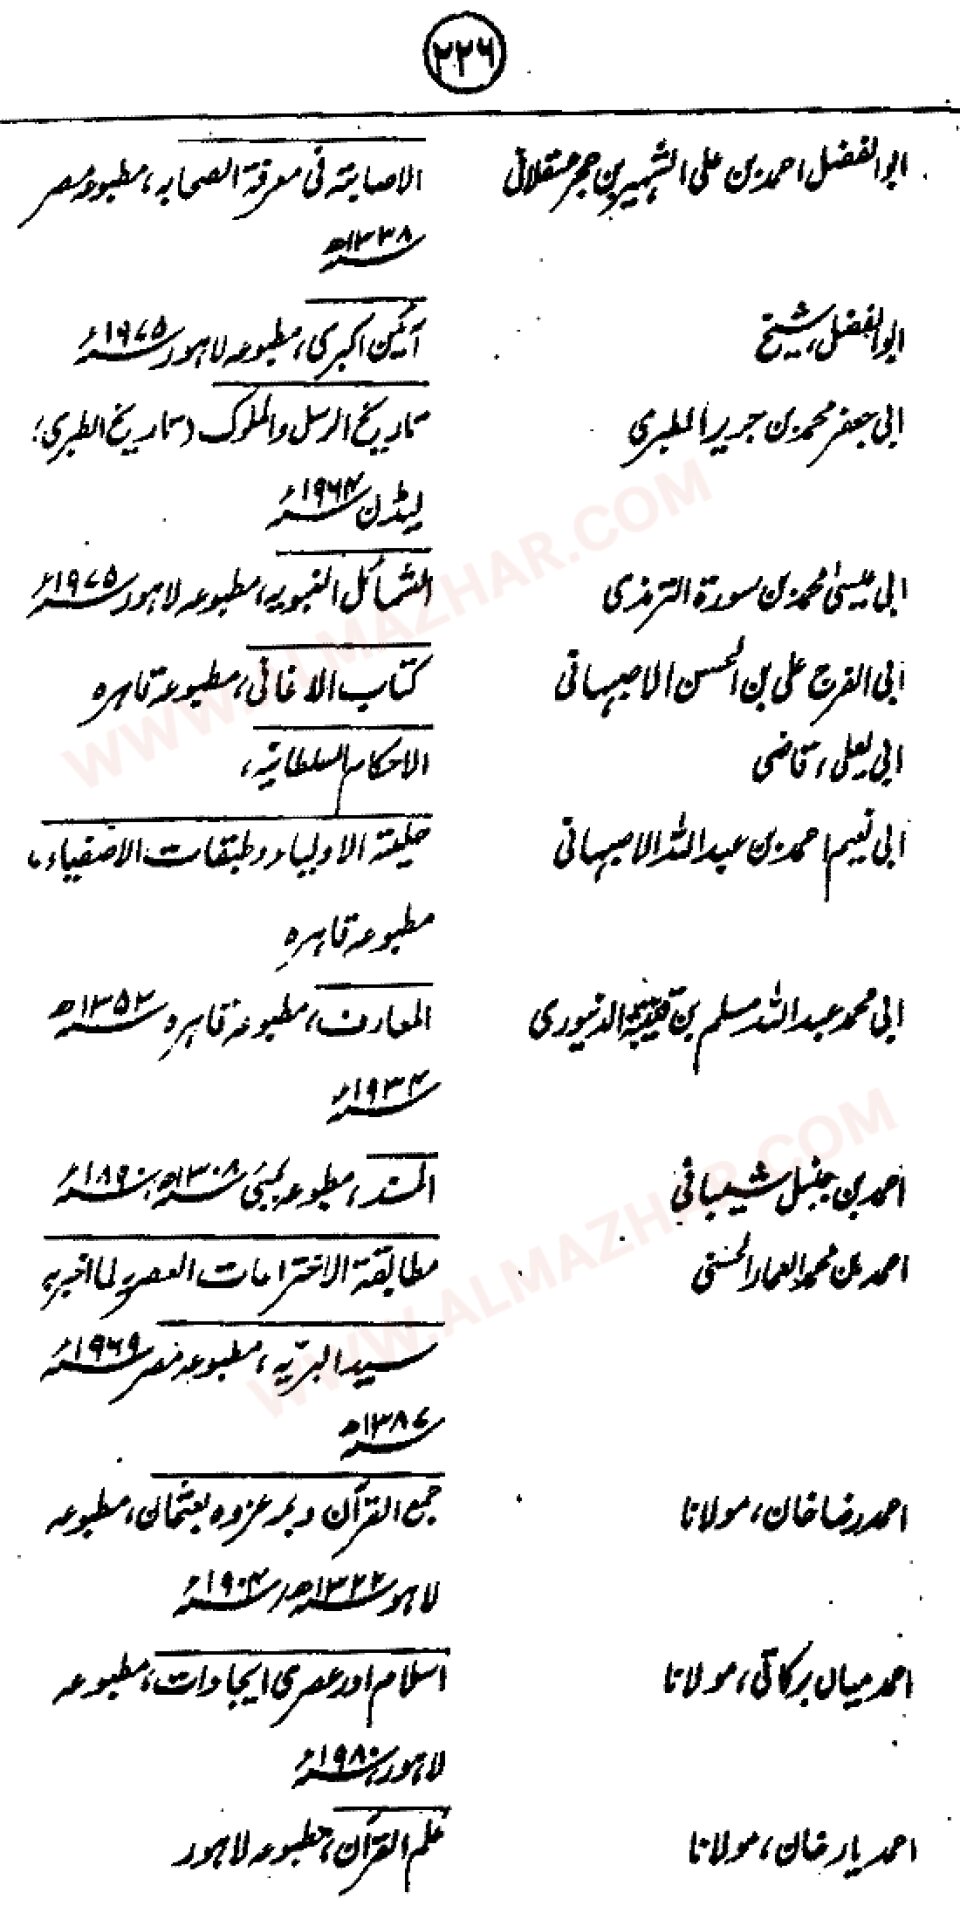 ۲۲۶
ابوالفضل احمد بن علی الشہیر بن حجر عسقلانی الاصابۃ فی معرفۃ الصحابہ، مطبوعہ مصر
۱۳۳۸ھ
ابوالفضل، شیخ آئین اکبری، مطبوعہ لاہور ۱۹۷۵ء
ابی جعفر محمد بن جریر الطبری تاریخ الرسل والملوک (تاریخ الطبری)؛
لیڈن ۱۹۶۴ء
ابی عیسیٰ محمد بن سورۃ الترمذی الشمائل النبویہ، مطبوعہ لاہور ۱۹۷۵ء
ابی الفرج علی بن الحسن الاصبہانی کتاب الاغانی، مطبوعۃ قاہرہ
ابی یعلی، قاضی الاحکام السلطانیۃ،
ابی نعیم احمد بن عبد اللہ الاصبہانی حلیۃ الاولیاء وطبقات الاصفیاء،
مطبوعہ قاہرہ
ابی محمد عبد اللہ مسلم بن قتیبہ الدنیوری المعارف، مطبوعۃ قاہرہ ۱۳۵۳ھ
۱۹۳۴ء
احمد بن حنبل شیبانی المسند، مطبوعہ بمبئی ۱۳۰۸ھ، ۱۸۹۰ء
احمد بن محمد العمار الحسنی مطابقۃ الاخترامات العصریہ لما اخبر بہ
سید البریّہ، مطبوعہ مصر ۱۹۶۹ء
۱۳۸۷ھ
احمد رضا خان، مولانا جمع القرآن وبم عزوہ بعثمان، مطبوعہ
لاہور ۱۳۲۲ھ/ ۱۹۰۴ء
احمد میاں برکاتی، مولانا اسلام اور عصری ایجادات، مطبوعہ
لاہور، ۱۹۸۰ء
احمد یار خان، مولانا علم القرآن، مطبوعہ لاہور
WWW.ALMAZHAR.COM
WWW.ALMAZHAR.COM